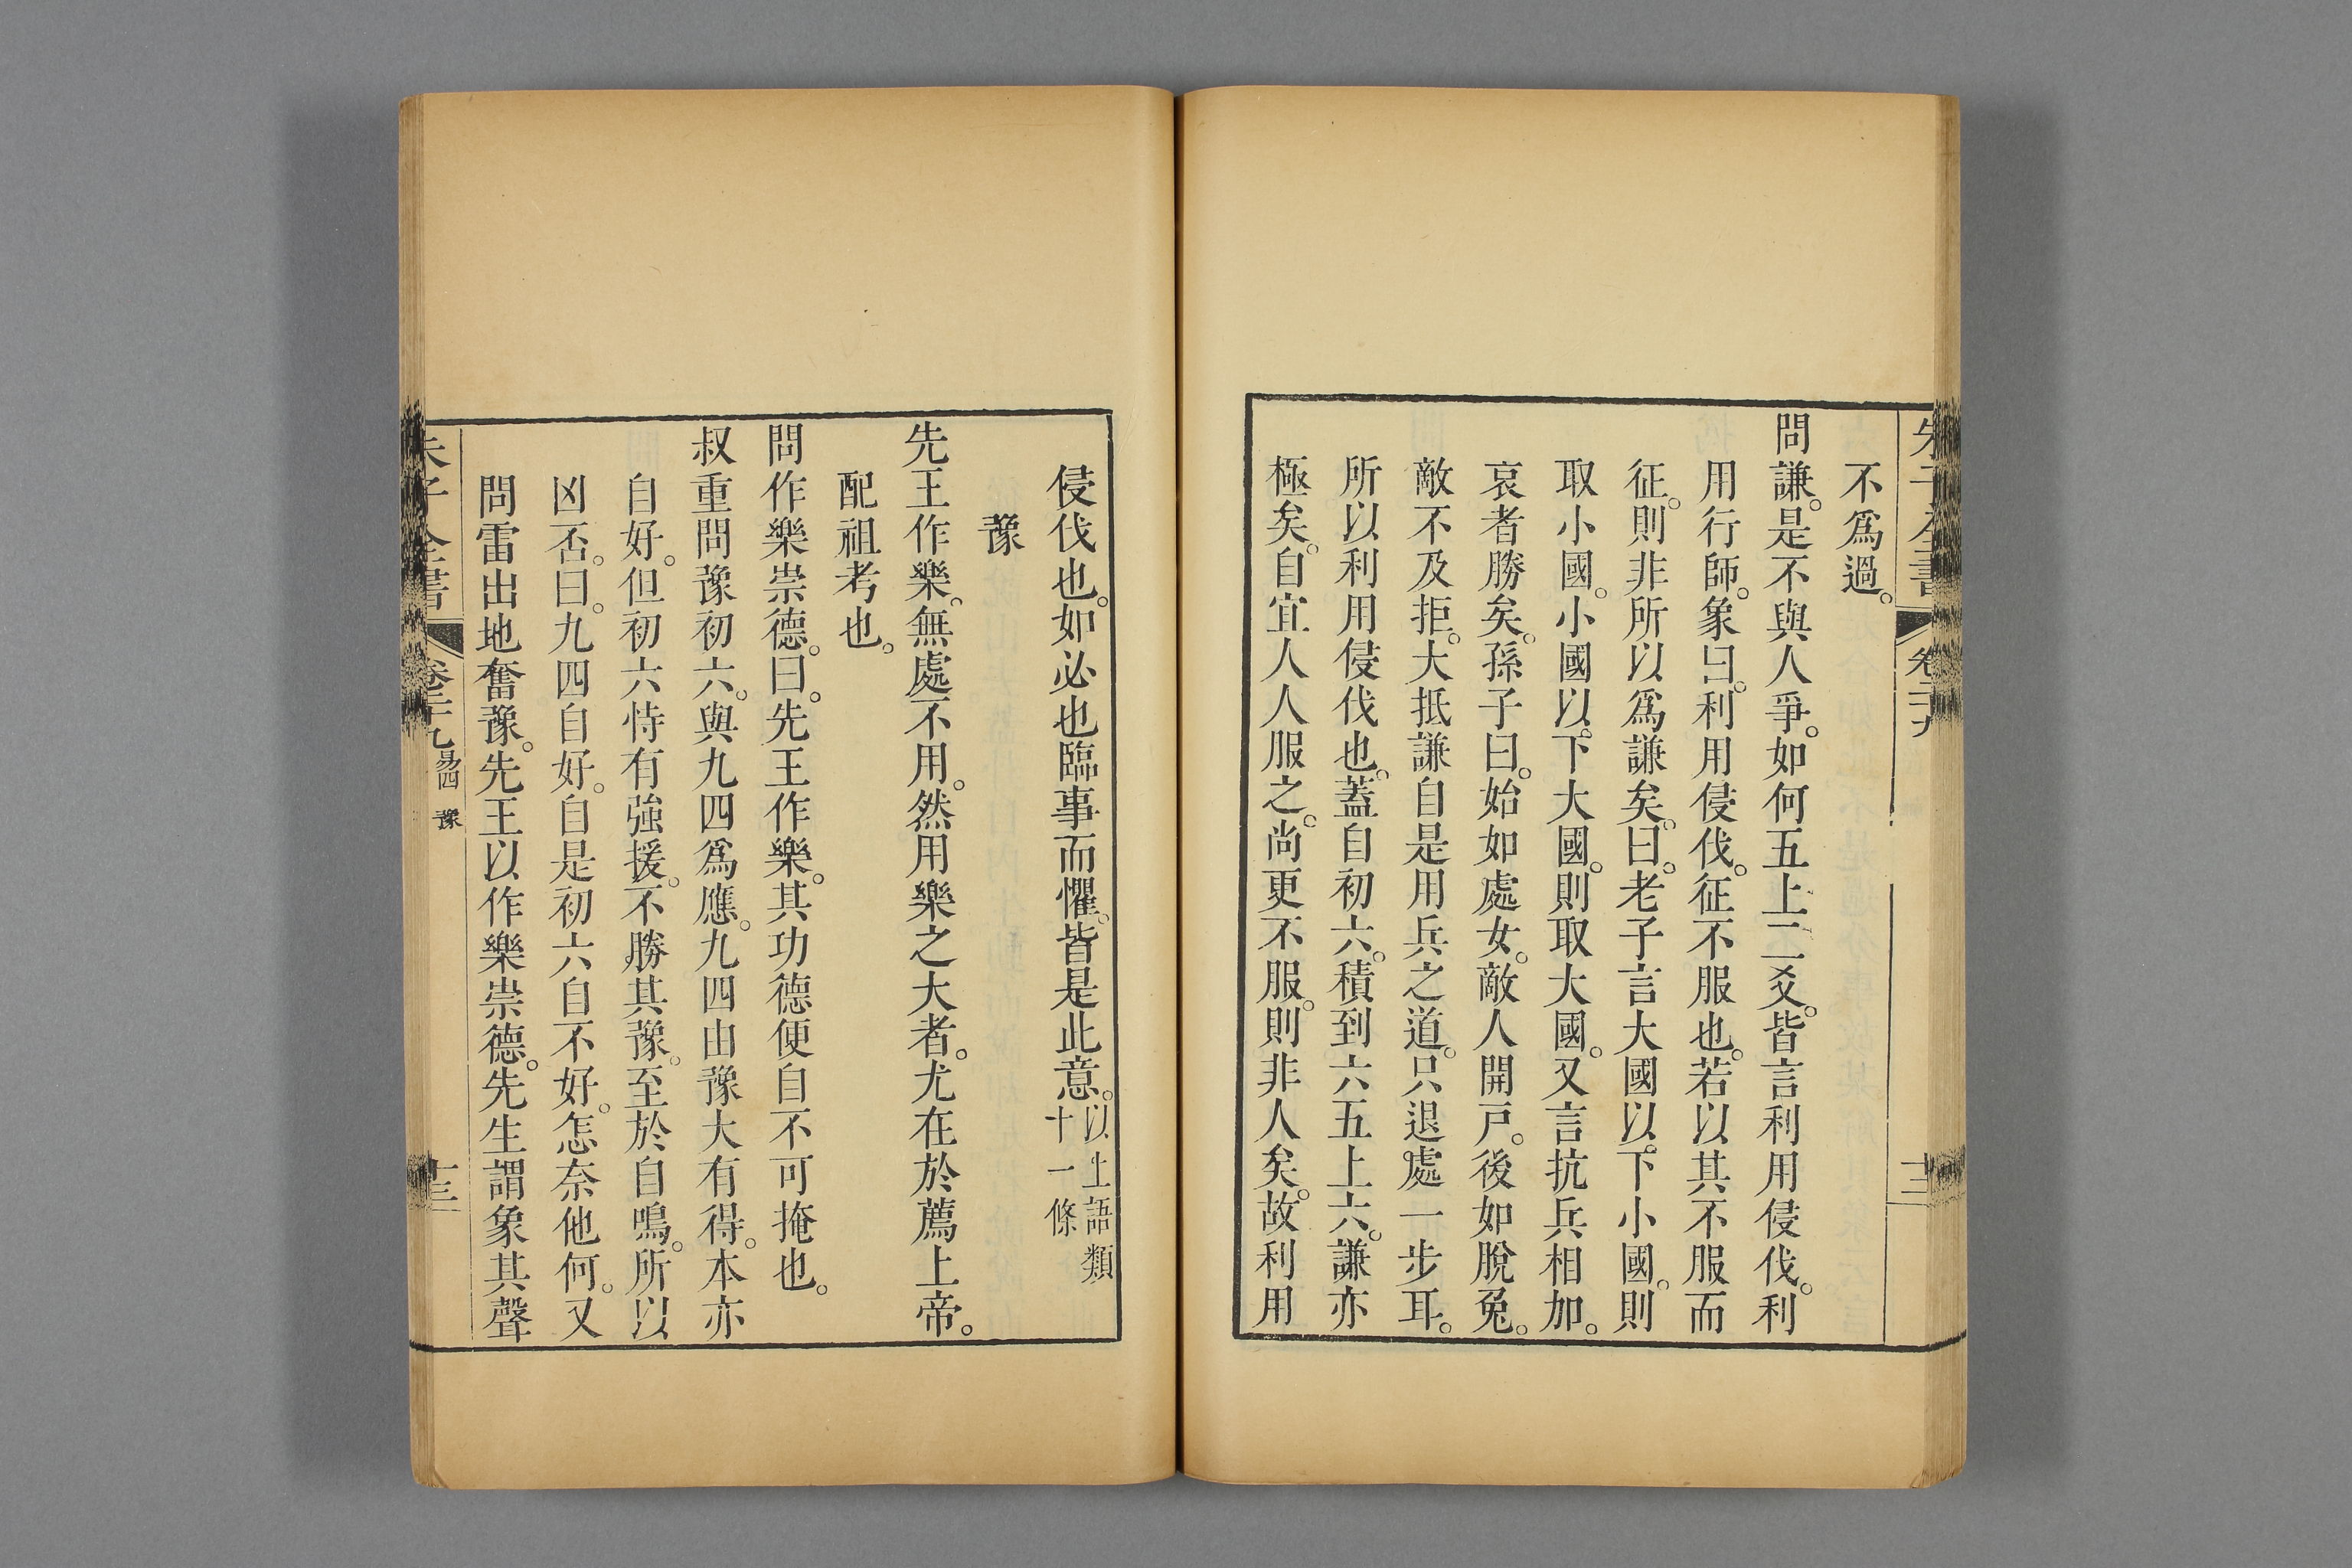 朱子全書 卷二十九 十二
不爲過。
問謙。是不與人爭。如何五上二爻。皆言利用侵伐。利
用行師。象曰。利用侵伐。征不服也。若以其不服而
征。則非所以爲謙矣。曰。老子言大國以。下小國。則
取小國。小國以。下大國。則取大國。又言抗兵相加。
哀者勝矣。孫子曰。始如處女。敵人開戸。後如脫兔。
敵不及拒。大抵謙自是用兵之道。只退處一步耳。
所以利用侵伐也。蓋自初六。積到六五上六。謙亦
極矣。自宜人人服之。尚更不服。則非人矣。故利用
侵伐也。如必也臨事而懼。皆是此意。
以上語類
十一條
豫
先王作樂。無處不用。然用樂之大者。尤在於薦上帝。
配祖考也。
問作樂崇德。曰。先王作樂。其功德便自不可掩也。
叔重問豫初六。與九四爲應。九四由豫大有得。本亦
自好。但初六恃有強援。不勝其豫。至於自鳴。所以
凶否。曰。九四自好。自是初六自不好。怎奈他何。又
問雷出地奮豫。先王以作樂崇德。先生謂象其聲
朱子全書 卷二十九 易四 豫 十三